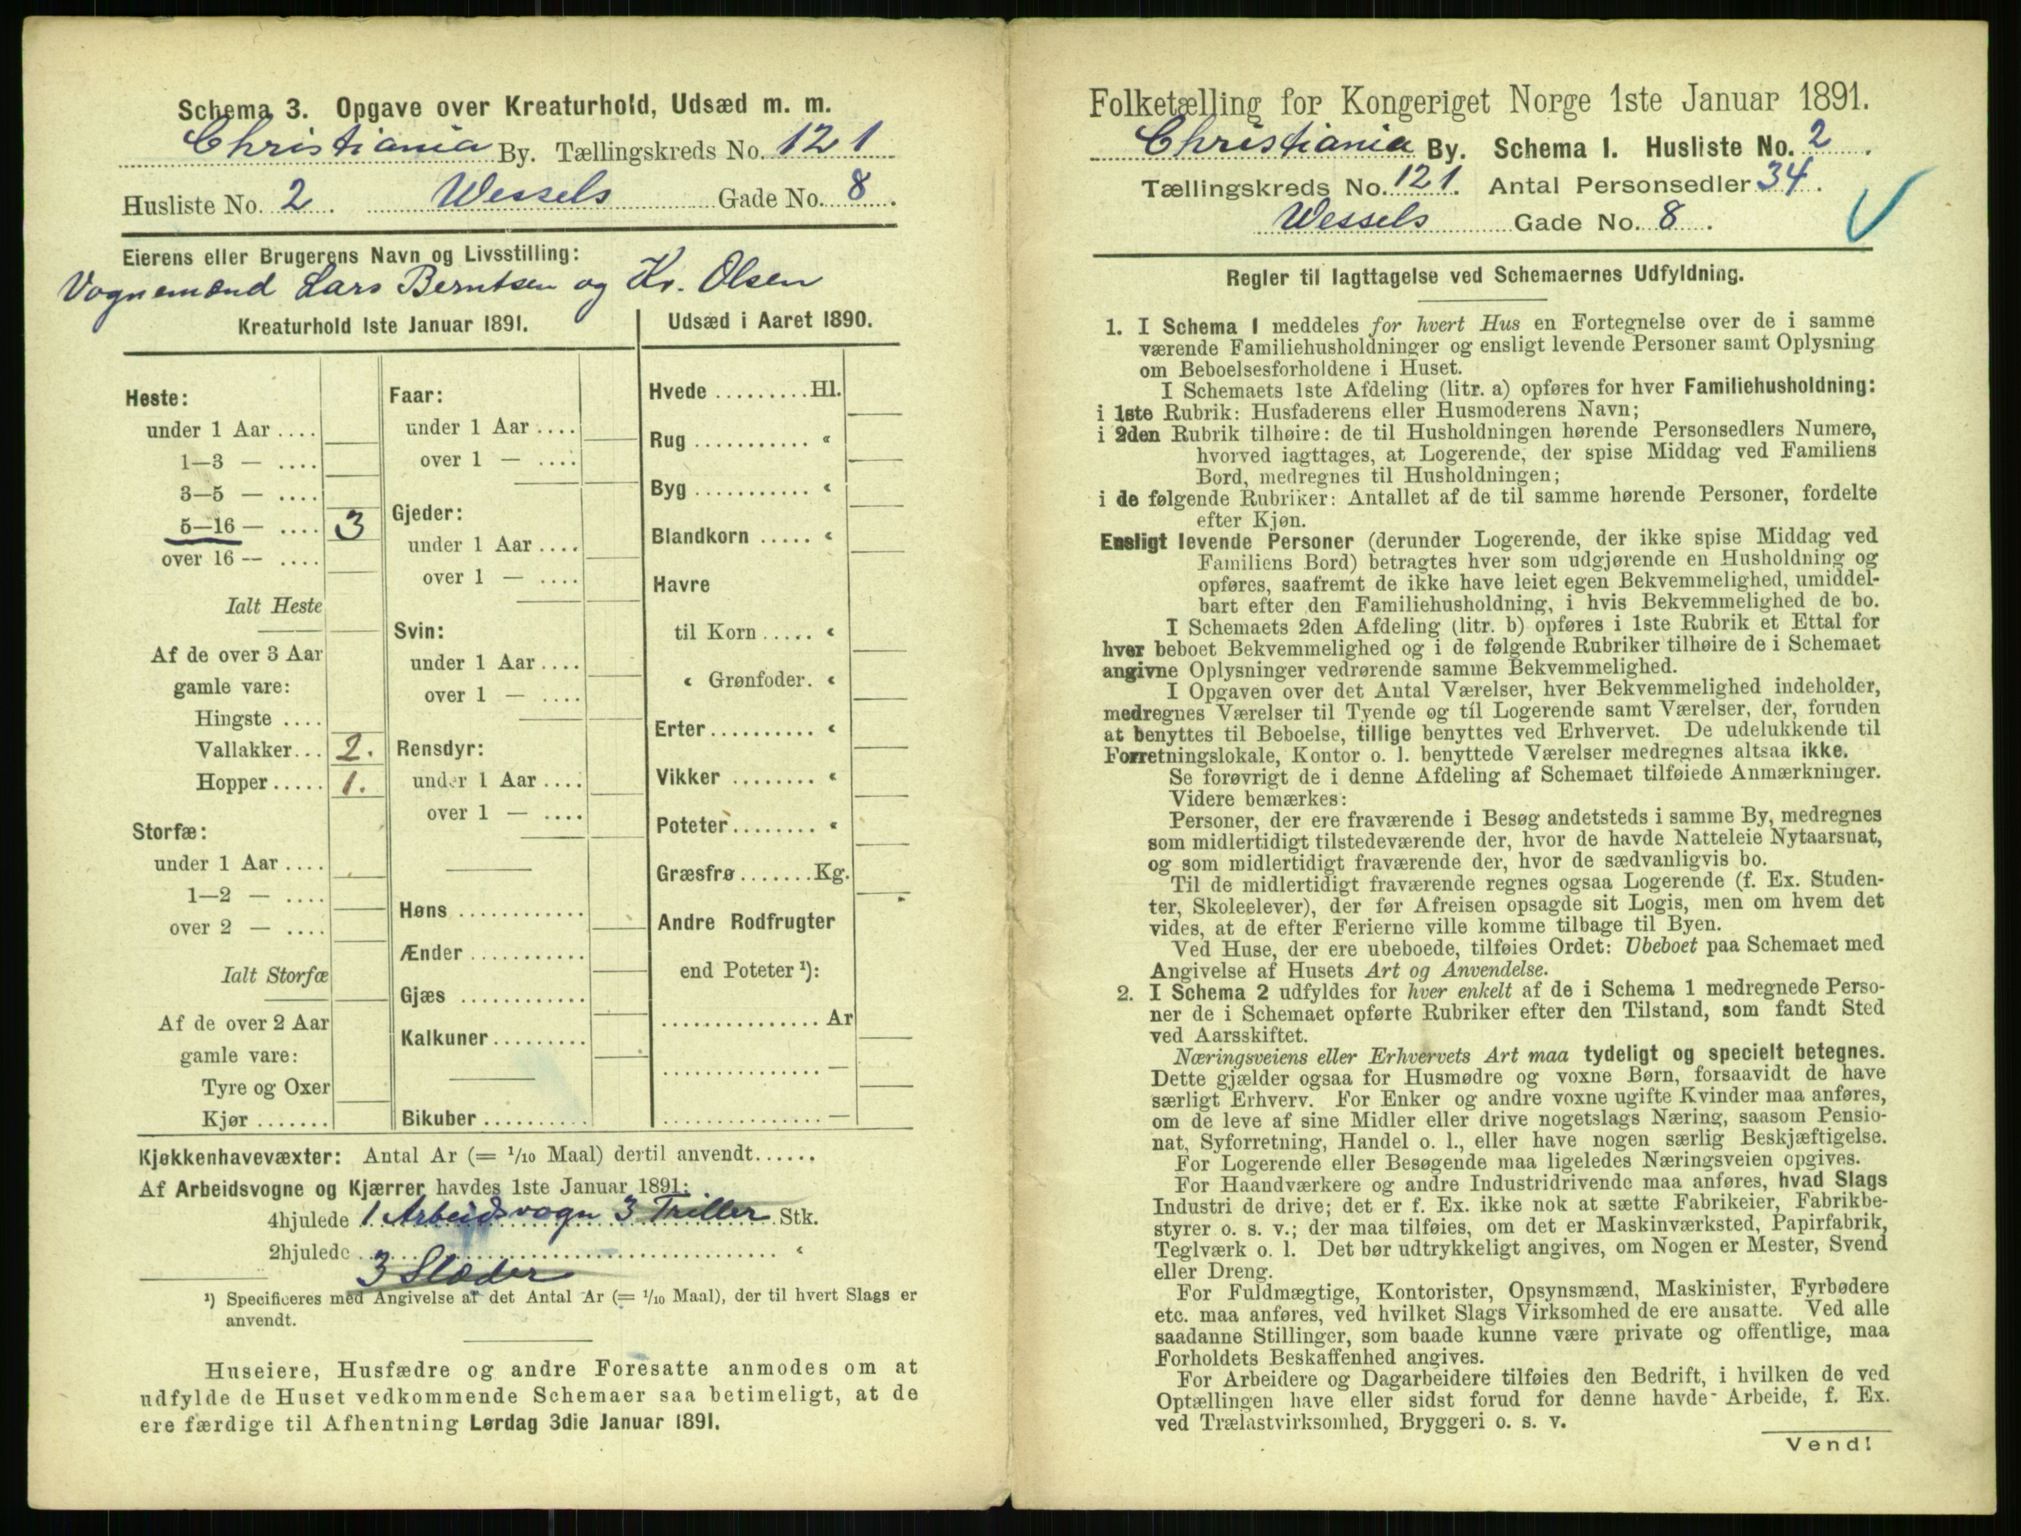 Schema 3. Opgave over Kreaturhold, Udsæd m. m.
Christiania By. Tællingskreds No. 121
Husliste No. 2. Wessels Gade No. 8.
Eierens eller Brugerens Navn og Livsstilling:
Vognemænd Lars Berntsen og Kr. Olsen
Kreaturhold 1ste Januar 1891.
Heste:
under 1 Aar ....
1—3 — ....
3—5 — ....
5—16 — .... 3
over 16 — ....
Ialt Heste
Af de over 3 Aar
gamle vare:
Hingste ....
Vallakker... 2.
Hopper ..... 1.
Storfæ:
under 1 Aar ....
1—2 — ....
over 2 — ....
Ialt Storfæ
Af de over 2 Aar
gamle vare:
Tyre og Oxer
Kjør .......
Faar:
under 1 Aar ....
over 1 — ....
Gjeder:
under 1 Aar ....
over 1 — ....
Svin:
under 1 Aar ....
over 1 — ....
Rensdyr:
under 1 Aar ....
over 1 — ....
Høns ............
Ænder ...........
Gjæs ............
Kalkuner.........
Bikuber ..........
Udsæd i Aaret 1890.
Hvede .........Hl.
Rug ........... «
Byg ........... «
Blandkorn ..... «
Havre
til Korn ..... «
« Grønfoder. «
Erter.......... «
Vikker ........ «
Poteter........ «
Græsfrø.......Kg.
Andre Rodfrugter
end Poteter ¹):
............... Ar
............... —
............... —
Kjøkkenhavevæxter: Antal Ar (= 1/10 Maal) dertil anvendt......
Af Arbeidsvogne og Kjærrer havdes 1ste Januar 1891:
4hjulede 1 Arbeidsvogn 3 Triller Stk.
2hjulede ............ «
3 Slæder
¹) Specificeres med Angivelse af det Antal Ar (= 1/10 Maal), der til hvert Slags er
anvendt.
Huseiere, Husfædre og andre Foresatte anmodes om at
udfylde de Huset vedkommende Schemaer saa betimeligt, at de
ere færdige til Afhentning Lørdag 3die Januar 1891.
Folketælling for Kongeriget Norge 1ste Januar 1891.
Christiania By. Schema 1. Husliste No. 2.
Tællingskreds No. 121. Antal Personsedler 34.
Wessels Gade No. 8.
Regler til Iagttagelse ved Schemaernes Udfyldning.
1. I Schema 1 meddeles for hvert Hus en Fortegnelse over de i samme
værende Familiehusholdninger og ensligt levende Personer samt Oplysning
om Beboelsesforholdene i Huset.
I Schemaets 1ste Afdeling (litr. a) opføres for hver Familiehusholdning:
i 1ste Rubrik: Husfaderens eller Husmoderens Navn;
i 2den Rubrik tilhøire: de til Husholdningen hørende Personsedlers Numere,
hvorved iagttages, at Logerende, der spise Middag ved Familiens
Bord, medregnes til Husholdningen;
i de følgende Rubriker: Antallet af de til samme hørende Personer, fordelte
efter Kjøn.
Ensligt levende Personer (derunder Logerende, der ikke spise Middag ved
Familiens Bord) betragtes hver som udgjørende en Husholdning og
opføres, saafremt de ikke have leiet egen Bekvemmelighed, umiddel-
bart efter den Familiehusholdning, i hvis Bekvemmelighed de bo.
I Schemaets 2den Afdeling (litr. b) opføres i 1ste Rubrik et Ettal for
hver beboet Bekvemmelighed og i de følgende Rubriker tilhøire de i Schemaet
angivne Oplysninger vedrørende samme Bekvemmelighed.
I Opgaven over det Antal Værelser, hver Bekvemmelighed indeholder,
medregnes Værelser til Tyende og til Logerende samt Værelser, der, foruden
at benyttes til Beboelse, tillige benyttes ved Erhvervet. De udelukkende til
Forretningslokale, Kontor o. l. benyttede Værelser medregnes altsaa ikke.
Se forøvrigt de i denne Afdeling af Schemaet tilføiede Anmærkninger.
Videre bemærkes:
Personer, der ere fraværende i Besøg andetsteds i samme By, medregnes
som midlertidigt tilstedeværende der, hvor de havde Natteleie Nytaarsnat,
og som midlertidigt fraværende der, hvor de sædvanligvis bo.
Til de midlertidigt fraværende regnes ogsaa Logerende (f. Ex. Studen-
ter, Skoleelever), der før Afreisen opsagde sit Logis, men om hvem det
vides, at de efter Ferierne ville komme tilbage til Byen.
Ved Huse, der ere ubeboede, tilføies Ordet: Ubeboet paa Schemaet med
Angivelse af Husets Art og Anvendelse.
2. I Schema 2 udfyldes for hver enkelt af de i Schema 1 medregnede Perso-
ner de i Schemaet opførte Rubriker efter den Tilstand, som fandt Sted
ved Aarsskiftet.
Næringsveiens eller Erhvervets Art maa tydeligt og specielt betegnes.
Dette gjælder ogsaa for Husmødre og voxne Børn, forsaavidt de have
særligt Erhverv. For Enker og andre voxne ugifte Kvinder maa anføres,
om de leve af sine Midler eller drive nogetslags Næring, saasom Pensio-
nat, Syforretning, Handel o. l., eller have nogen særlig Beskjæftigelse.
For Logerende eller Besøgende maa ligeledes Næringsveien opgives.
For Haandværkere og andre Industridrivende maa anføres, hvad Slags
Industri de drive; det er f. Ex. ikke nok at sætte Fabrikeier, Fabrikbe-
styrer o. s. v.; der maa tilføies, om det er Maskinværksted, Papirfabrik,
Teglværk o. l. Det bør udtrykkeligt angives, om Nogen er Mester, Svend
eller Dreng.
For Fuldmægtige, Kontorister, Opsynsmænd, Maskinister, Fyrbødere
etc. maa anføres, ved hvilket Slags Virksomhed de ere ansatte. Ved alle
saadanne Stillinger, som baade kunne være private og offentlige, maa
Forholdets Beskaffenhed angives.
For Arbeidere og Dagarbeidere tilføies den Bedrift, i hvilken de ved
Optællingen have eller sidst forud for denne havde Arbeide, f. Ex.
ved Trælastvirksomhed, Bryggeri o. s. v.
Vend!